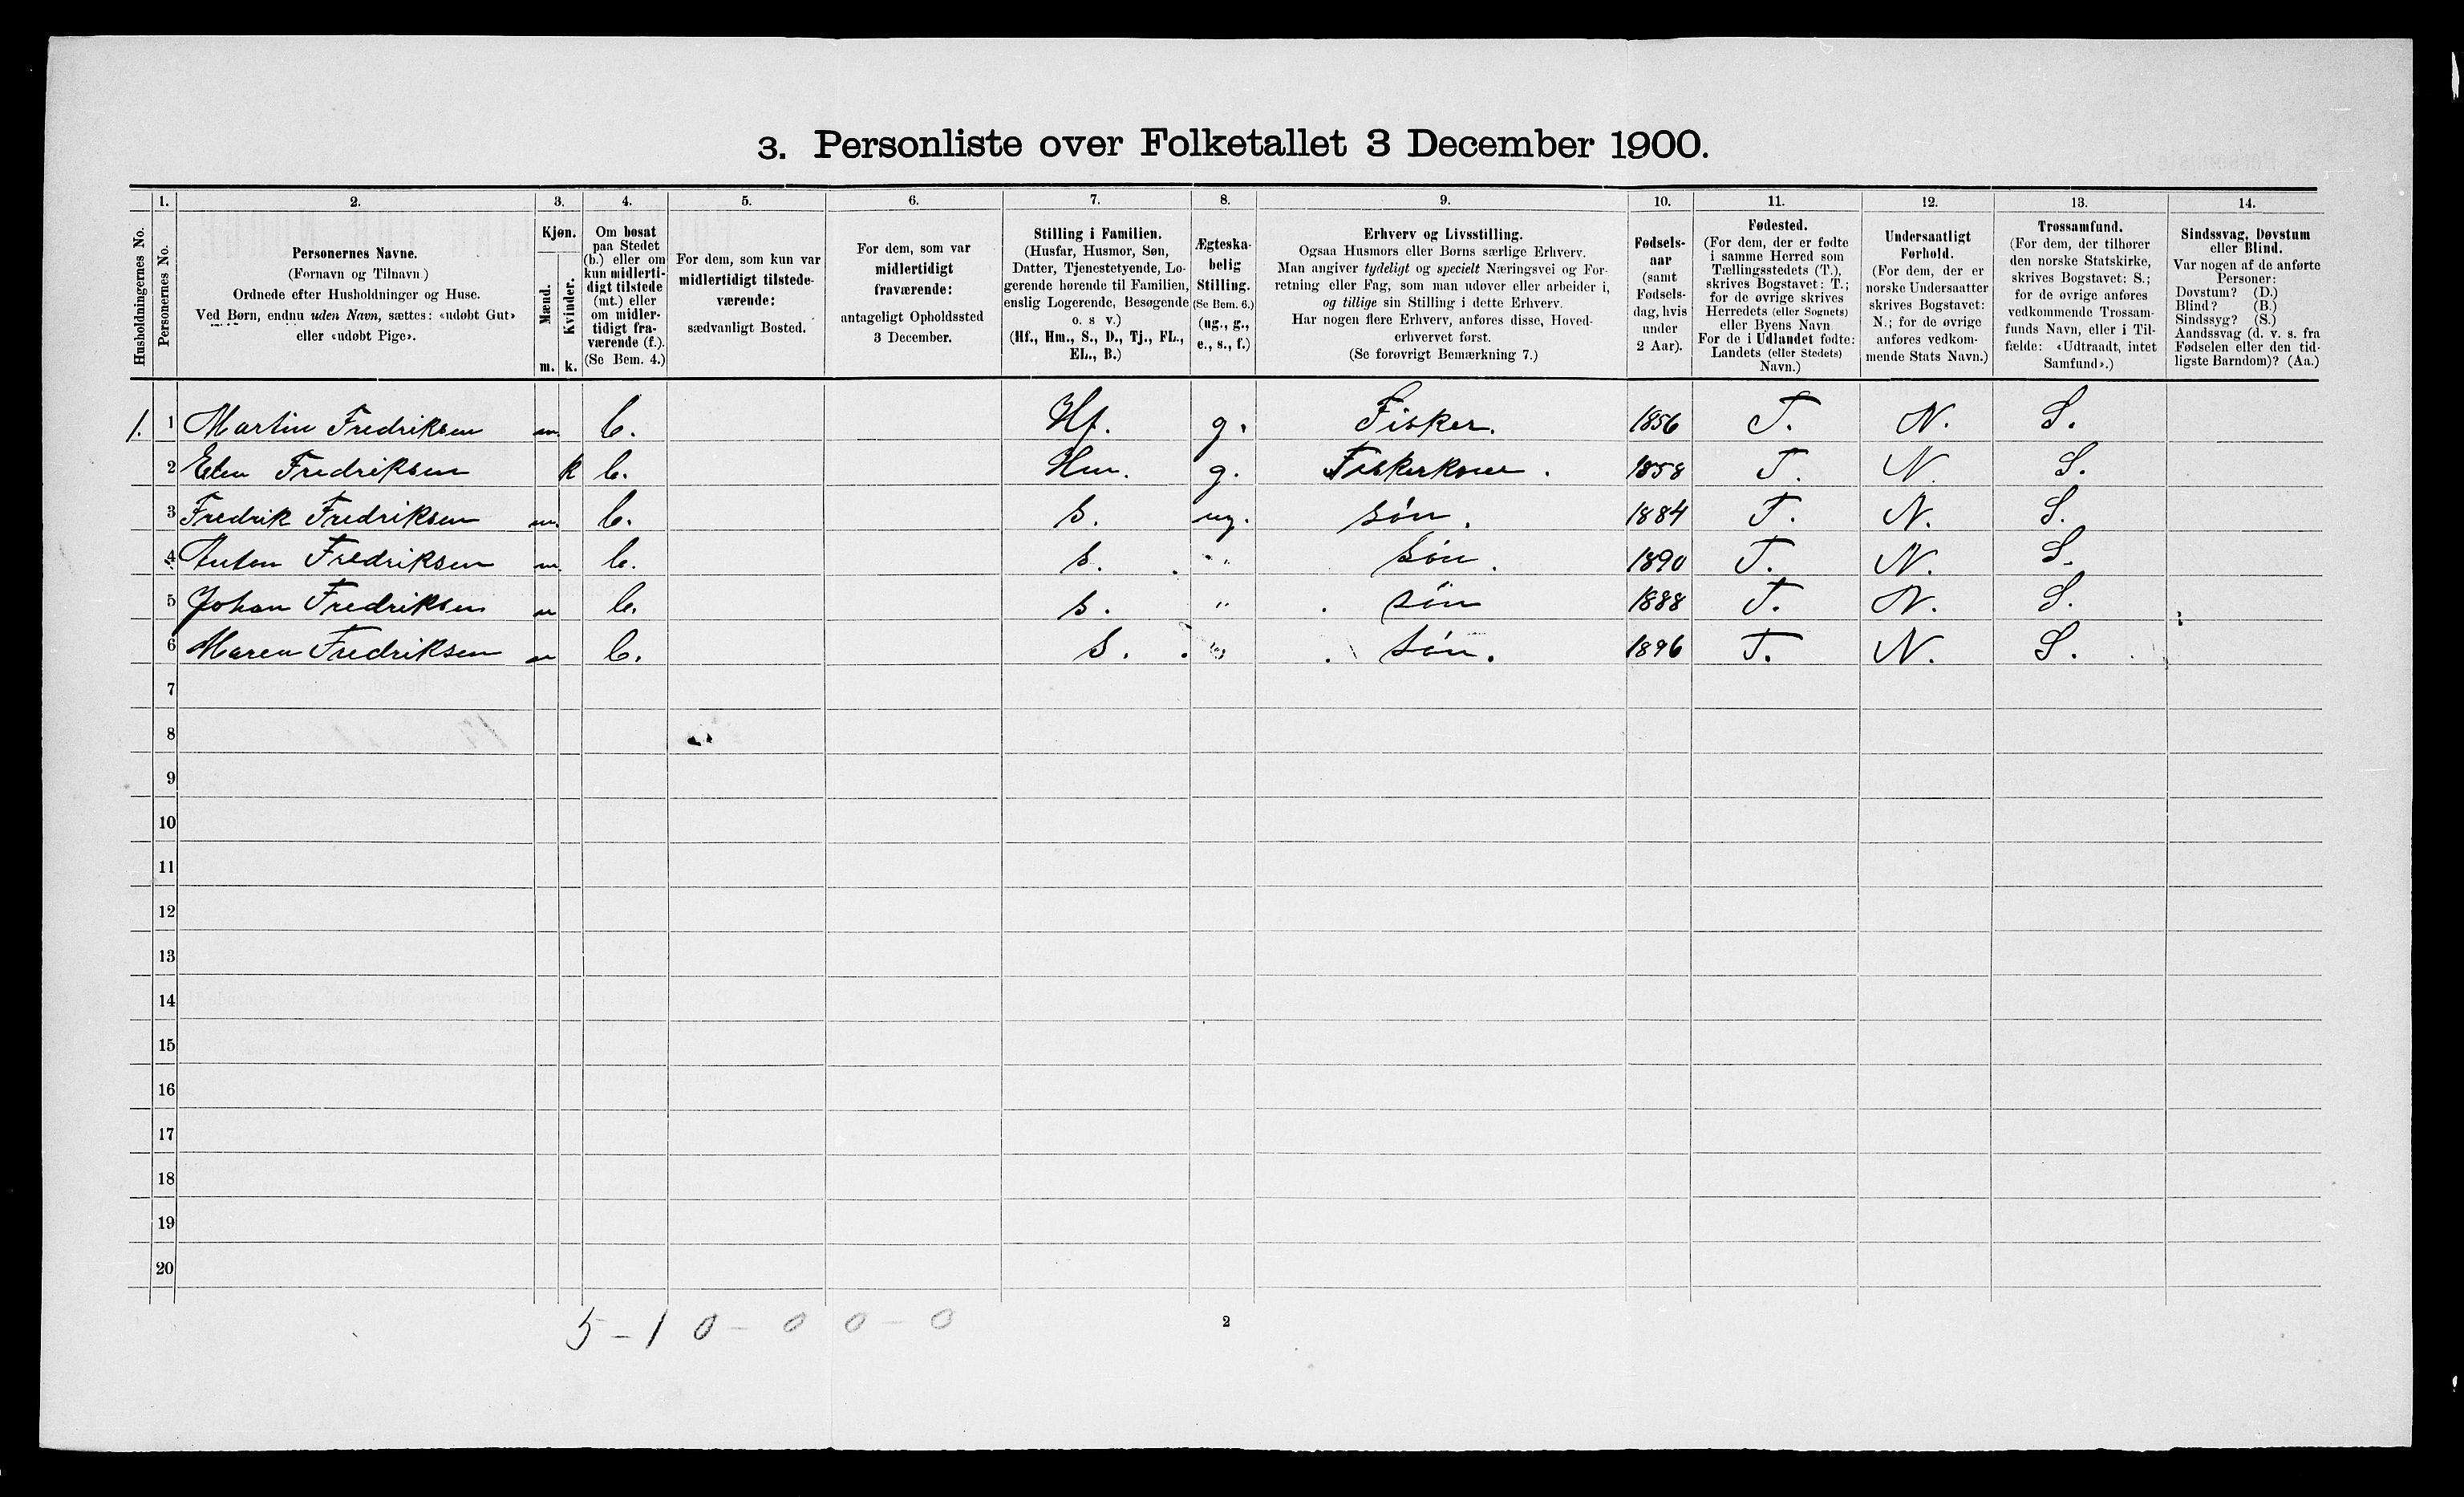 3. Personliste over Folketallet 3 December 1900.
1. 2. 3. 4. 5. 6. 7. 8. 9. 10. 11. 12. 13. 14.
Husholdningernes No.
Personernes No.
Personernes Navne.
(Fornavn og Tilnavn)
Ordnede efter Husholdninger og Huse.
Ved Børn, endnu uden Navn, sættes: «udøbt Gut»
eller «udøbt Pige».
Kjøn.
Mænd.
Kvinder.
m. k.
Om bosat
paa Stedet
(b.) eller om
kun midlerti-
digt tilstede
(mt.) eller
om midler-
tidigt fra-
værende (f.).
(Se Bem. 4.)
For dem, som kun var
midlertidigt tilstede-
værende:
sædvanligt Bosted.
For dem, som var
midlertidigt
fraværende:
antageligt Opholdssted
3 December.
Stilling i Familien.
(Husfar, Husmor, Søn,
Datter, Tjenestetyende, Lo-
gerende hørende til Familien,
enslig Logerende, Besøgende
o. s v.)
(Hf., Hm., S., D., Tj., FL.,
EL., B.)
Ægteska-
belig
Stilling.
(Se Bem. 6.)
(ug., g.,
e., s., f.)
Erhverv og Livsstilling.
Ogsaa Husmors eller Børns særlige Erhverv.
Man angiver tydeligt og specielt Næringsvei og For-
retning eller Fag, som man udøver eller arbeider i,
og tillige sin Stilling i dette Erhverv.
Har nogen flere Erhverv, anføres disse, Hoved-
erhvervet først.
(Se forøvrigt Bemærkning 7.)
Fødsels-
aar
(samt
Fødsels-
dag, hvis
under
2 Aar).
Fødested.
(For dem, der er fødte
i samme Herred som
Tællingsstedets (T.),
skrives Bogstavet: T.;
for de øvrige skrives
Herredets (eller Sognets)
eller Byens Navn
For de i Udlandet fødte:
Landets (eller Stedets)
Navn.)
Undersaatligt
Forhold.
(For dem, der er
norske Undersaatter
skrives Bogstavet:
N.; for de øvrige
anføres vedkom-
mende Stats Navn.)
Trossamfund.
(For dem, der tilhører
den norske Statskirke,
skrives Bogstavet: S.;
for de øvrige anføres
vedkommende Trossam-
funds Navn, eller i Til-
fælde: «Udtraadt, intet
Samfund».)
Sindssvag, Døvstum
eller Blind.
Var nogen af de anførte
Personer:
Døvstum? (D.)
Blind? (B.)
Sindssyg? (S.)
Aandssvag (d. v. s. fra
Fødselen eller den tid-
ligste Barndom)? (Aa.)
1. 1 Martin Fredriksen m. b. Hf. g. Fisker. 1856 T. N. S.
2 Elen Fredriksen k b. Hm. g. Fiskerkone. 1858 T. N. S.
3 Fredrik Fredriksen m. b. s. ug. søn. 1884 T. N. S.
4 Anton Fredriksen m. b. s. " søn. 1890 T. N. S.
5 Johan Fredriksen m b. s. " søn 1888 T. N. S.
6 Maren Fredriksen m b. S. " søn. 1896 T. N. S.
7
8
9
10
11
12
13
14
15
16
17
18
19
20
5 - 1 0 - 0 0 - 0
2